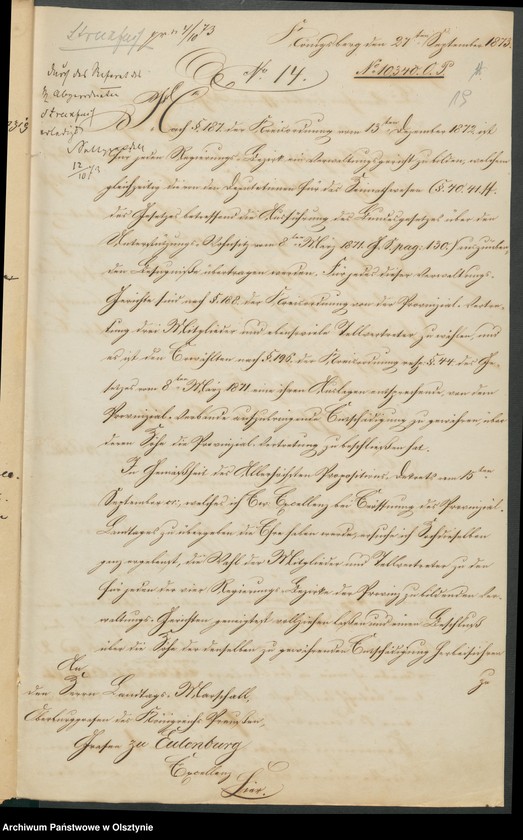 Streckfuß pr. n. 4/10 73
Königsberg den 27ten September 1873.
No 14.
No 10340. O. P.
15
durch das Referat des
H. Abgeordneten
Streckfuß
erledigt
12/10 73
Nach § 187. der Kreisordnung vom 13ten Dezember 1872 ist
für jeden Regierungs-Bezirk ein Verwaltungsgericht zu bilden, welchem
gleichzeitig die von den Deputationen für das Heimathwesen (§. 40. 41 ff.
des Gesetzes betreffend die Ausführung des Bundesgesetzes über den
Unterstützungs-Wohnsitz vom 8ten März 1871. G. S. pag: 130.) auszuüben
den Befugnisse übertragen werden. Für jedes dieser Verwaltungs-
Gerichte sind nach § 188. der Kreisordnung von der Provinzial-Vertre-
tung drei Mitglieder und ebensoviele Stellvertreter zu wählen, und
es ist den Gewählten nach § 196. der Kreisordnung resp. §. 44. des Ge-
setzes vom 8ten März 1871 eine ihren Auslagen entsprechende, von dem
Provinzial-Verbande aufzubringende Entschädigung zu gewähren, über
deren Höhe die Provinzial-Vertretung zu beschließen hat.
In Gemäßheit des Allerhöchsten Propositions-Dekrets vom 15ten
September cr., welches ich Ew. Excellenz bei Eröffnung des Provinzial-
Landtages zu übergeben die Ehre haben werde, ersuche ich Hochdieselben
ganz ergebenst, die Wahl der Mitglieder und Stellvertreter zu den
für jeden der vier Regierungs-Bezirke der Provinz zu bildenden Ver-
waltungs-Gerichten geneigtest vollziehen lassen und einen Beschluß
über die Höhe der denselben zu gewährenden Entschädigung herbeiführen
zu
An
den Herrn Landtags-Marschall,
Oberburggrafen des Königreichs Preußen,
Grafen zu Eulenburg
Excellenz
Hier.
Archiwum Państwowe w Olsztynie